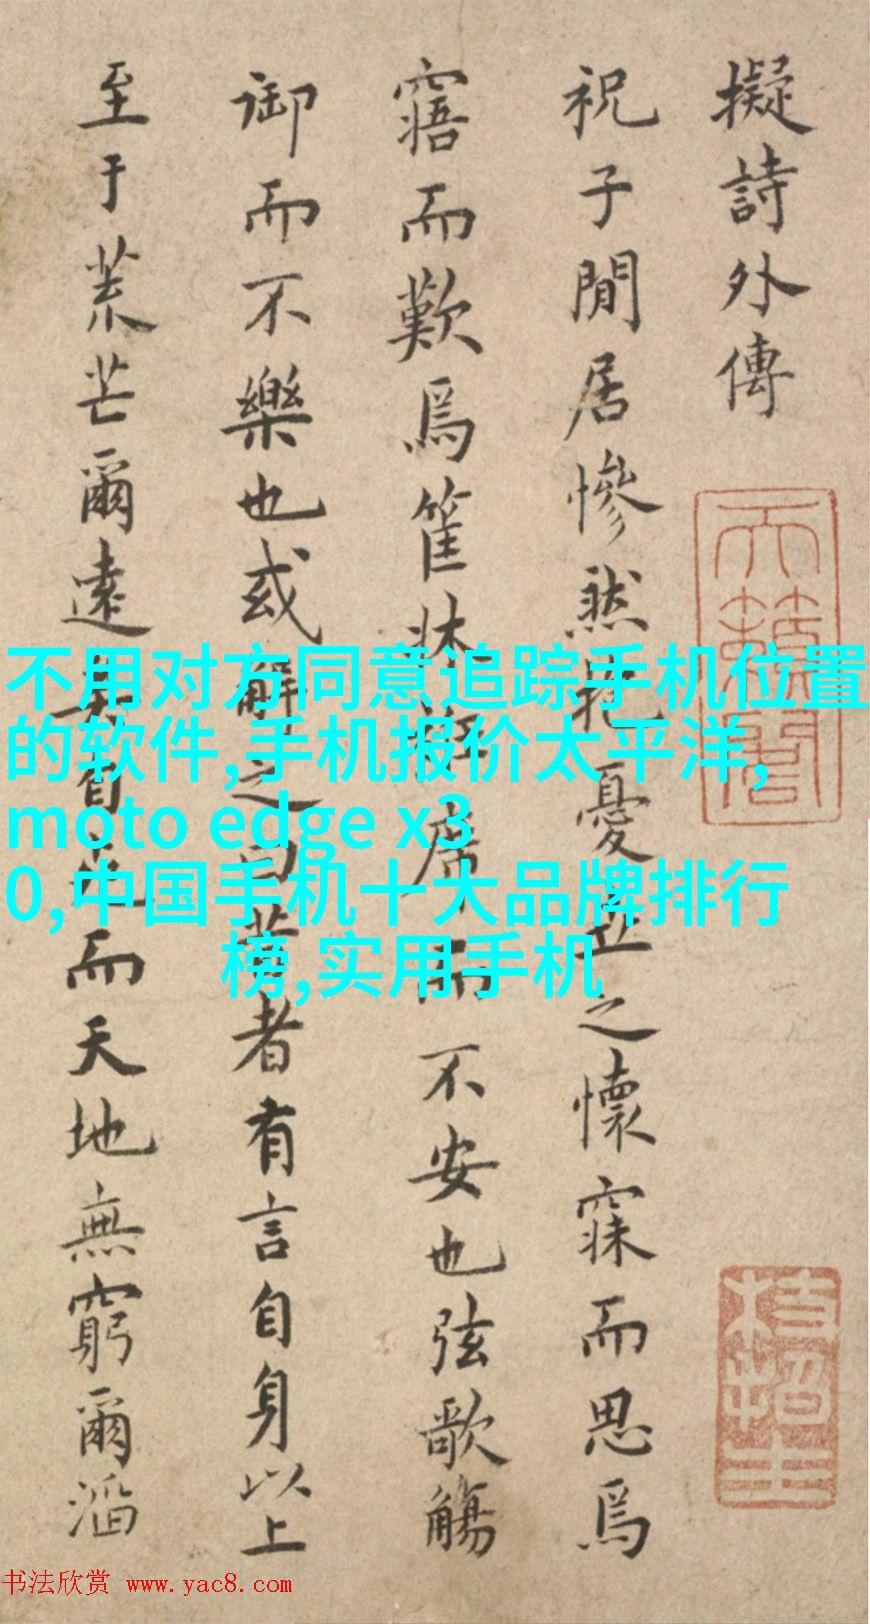 擬詩外傳
祝子閒居慘然抱憂世之懷寐而思焉
寤而歎焉筐牀衽席而不安也弦歌觴
御而不樂也或解之曰昔者有言自身以上
至于荒芒爾遠矣自也而天地無窮爾滔
不用对方同意追踪手机位置
的软件,手机报价太平洋,
moto edge x3
0,中国手机十大品牌排行
榜,实用手机
天籟閣
枝指生
书法欣赏 www.yac8.com